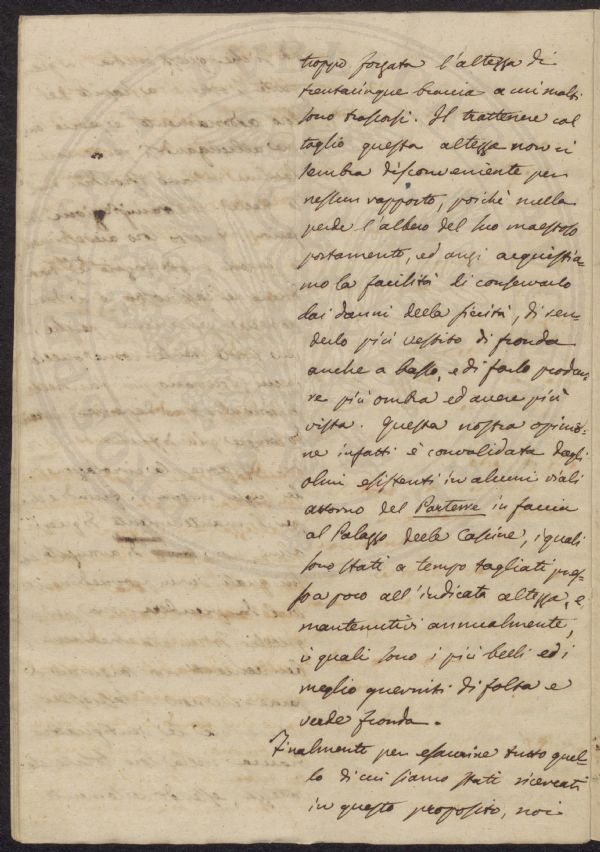 troppo forzata l'altezza di
trentacinque braccia a cui molti
sono trascorsi. Il trattenere col
taglio questa altezza non ci
sembra disconveniente per
nessun rapporto, poichè nulla
perde l'albero del suo maestoso
portamento, ed anzi acquistia-
mo la facilità di conservarlo
dai danni della siccità, di ren-
derlo più vestito di fronda
anche a basso, e di farlo produr-
re più ombra ed avere più
vista. Questa nostra opinio-
ne infatti è convalidata dagli
olmi esistenti in alcuni viali
attorno del Parterre in faccia
al Palazzo delle Cascine, i quali
sono stati a tempo tagliati pres-
so a poco all'indicata altezza, e
mantenutivi annualmente,
i quali sono i più belli ed i
meglio guerniti di folta e
verde fronda.
Finalmente per esaurire tutto quel-
lo di cui siamo stati ricercati
in questo proposito, noi